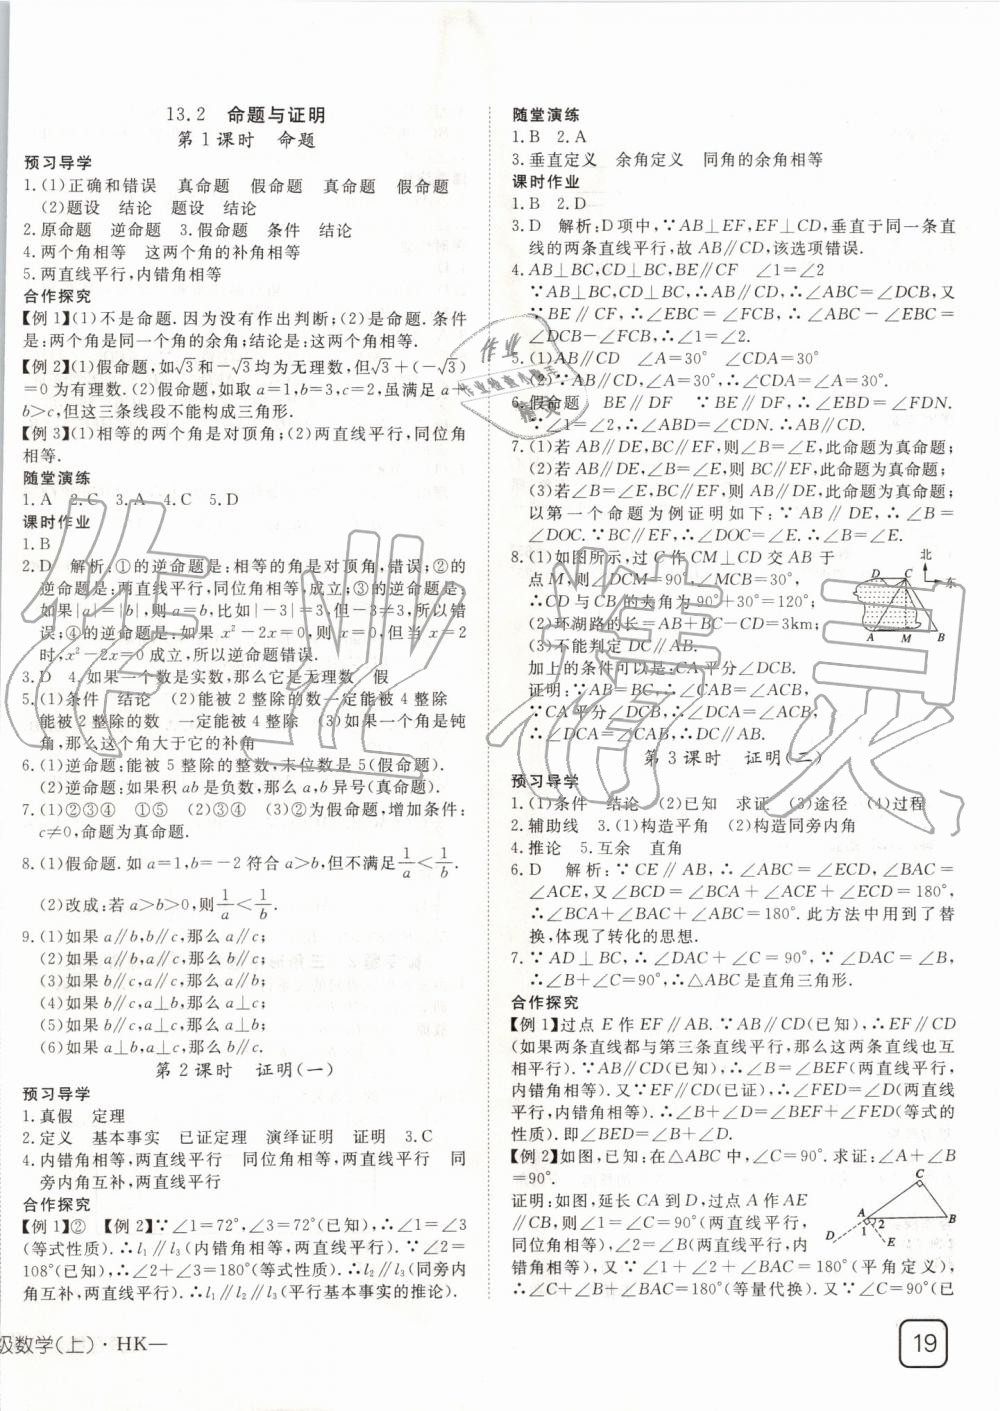 13.2 命题与证明
第1课时 命题
预习导学
1.(1)正确和错误 真命题 假命题 真命题 假命题
(2)题设 结论 题设 结论
2.原命题 逆命题 3.假命题 条件 结论
4.两个角相等 这两个角的补角相等
5.两直线平行,内错角相等
合作探究
【例1】(1)不是命题.因为没有作出判断;(2)是命题.条件
是:两个角是同一个角的余角;结论是:这两个角相等.
【例2】(1)假命题,如√3和-√3均为无理数,但√3+(-√3)
=0为有理数.(2)假命题,如取a=1,b=3,c=2,虽满足a+
b>c,但这三条线段不能构成三角形.
【例3】(1)相等的两个角是对顶角;(2)两直线平行,同位角
相等.
随堂演练
1.A 2.C 3.A 4.C 5.D
课时作业
1.B
2.D 解析:①的逆命题是:相等的角是对顶角,错误;②的
逆命题是:两直线平行,同位角相等,成立;③的逆命题是:
如果|a|=|b|,则a=b,比如|-3|=3,但-3≠3,所以错
误;④的逆命题是:如果x²-2x=0,则x=2,但当x=2
时,x²-2x=0成立,所以逆命题错误.
3.D 4.如果一个数是实数,那么它是无理数 假
5.(1)条件 结论 (2)能被2整除的数一定能被4整除
能被2整除的数 一定能被4整除 (3)如果一个角是钝
角,那么这个角大于它的补角
6.(1)逆命题:能被5整除的整数,末位数是5(假命题).
(2)逆命题:如果面积ab是负数,那么a,b异号(真命题).
7.(1)②③④ ①⑤ (2)①③④是假命题,增加条件:
c≠0,命题为真命题.
8.(1)假命题.如a=1,b=-2符合a>b,但不满足1/a<1/b.
(2)改成:若a>b>0,则1/a<1/b.
9.(1)如果a∥b,b∥c,那么a∥c;
(2)如果a∥b,a∥c,那么b∥c;
(3)如果b∥c,a∥c,那么a∥b;
(4)如果a⊥b,b∥c,那么a⊥c;
(5)如果b∥c,a⊥c,那么a⊥b;
(6)如果a⊥b,a⊥c,那么b∥c.
第2课时 证明(一)
预习导学
1.真假 定理
2.定义 基本事实 已证定理 演绎证明 证明 3.C
4.内错角相等,两直线平行 同位角相等,两直线平行 同
旁内角互补,两直线平行
合作探究
【例1】② 【例2】∵∠1=72°,∠3=72°(已知),∴∠1=∠3
(等式性质).∴l₁∥l₃(内错角相等,两直线平行).∵∠2=
108°(已知),∴∠2+∠3=180°(等式性质).∴l₂∥l₃(同旁
内角互补,两直线平行).∴l₁∥l₂(平行基本事实的推论).
级数学(上)·HK—
随堂演练
1.B 2.A
3.垂直定义 余角定义 同角的余角相等
课时作业
1.B 2.D
3.D 解析:D项中,∵AB⊥EF,EF⊥CD,垂直于同一条直
线的两条直线平行,故AB∥CD,该选项错误.
4.AB⊥BC,CD⊥BC,BE∥CF ∠1=∠2
∵AB⊥BC,CD⊥BC,∴AB∥CD,∴∠ABC=∠DCB,又
∵BE∥CF,∴∠EBC=∠FCB,∴∠ABC-∠EBC=
∠DCB-∠FCB,∴∠1=∠2.
5.(1)AB∥CD ∠A=30° ∠CDA=30°
(2)∵AB∥CD,∴∠A=∠CDA=30°.
6.假命题 BE∥DF ∵BE∥DF,∴∠EBD=∠FDN.
∵∠1=∠2,∴∠ABD=∠CDN.∴AB∥CD.
7.(1)若AB∥DE,BC∥EF,则∠B=∠E,此命题为真命题;
(2)若AB∥DE,∠B=∠E,则BC∥EF,此命题为真命题;
(3)若∠B=∠E,BC∥EF,则AB∥DE,此命题为真命题;
以第一个命题为例证明如下:∵AB∥DE,∴∠B=
∠DOC.∵BC∥EF,∴∠DOC=∠E,∴∠B=∠E.
8.(1)如图所示,过C作CM⊥CD交AB于
点M,则∠DCM=90°,∠MCB=30°.
∴CD与CB的夹角为90°+30°=120°;
(2)环湖路的长=AB+BC-CD=3km;
(3)不能判定DC∥AB.
加上的条件可以是:CA平分∠DCB.
证明:∵AB=BC,∴∠CAB=∠BCA,
∵CA平分∠DCB,∴∠DCA=∠BCA,
∴∠DCA=∠CAB,∴DC∥AB.
北
东
D C
A M B
第3课时 证明(二)
预习导学
1.(1)条件 结论 (2)已知 求证 (3)途径 (4)过程
2.辅助线 3.(1)构造平角 (2)构造同旁内角
4.推论 5.互余 直角
6.D 解析:∵CE∥AB,∴∠ABC=∠ECD,∠BAC=
∠ACE,又∠BCD=∠BCA+∠ACE+∠ECD=180°,
∴∠BCA+∠BAC+∠ABC=180°.此方法中用到了替
换,体现了转化的思想.
7.∵AD⊥BC,∴∠DAC+∠C=90°,∵∠DAC=∠B,
∴∠B+∠C=90°,∴△ABC是直角三角形.
合作探究
【例1】过点E作EF∥AB.∵AB∥CD(已知),∴EF∥CD
(如果两条直线都与第三条直线平行,那么这两条直线也互
相平行).∵EF∥AB(已知),∴∠B=∠BEF(两直线平行,
内错角相等).又∵EF∥CD(已证),∴∠FED=∠D(两直线
平行,内错角相等).∴∠B+∠D=∠BEF+∠FED(等式的
性质).即∠BED=∠B+∠D(等量代换).
【例2】如图,已知:在△ABC中,∠C=90°.求证:∠A+∠B
=90°.
证明:如图,延长CA到D,过点A作AE
∥CB,则∠1=∠C=90°(两直线平行,同
位角相等),∠2=∠B(两直线平行,
内错角相等).∵∠1+∠2+∠BAC=180°(平角定义),
∴∠C+∠B+∠BAC=180°(等量代换).又∵∠C=90°(已
C
A B
2
1
D E
19